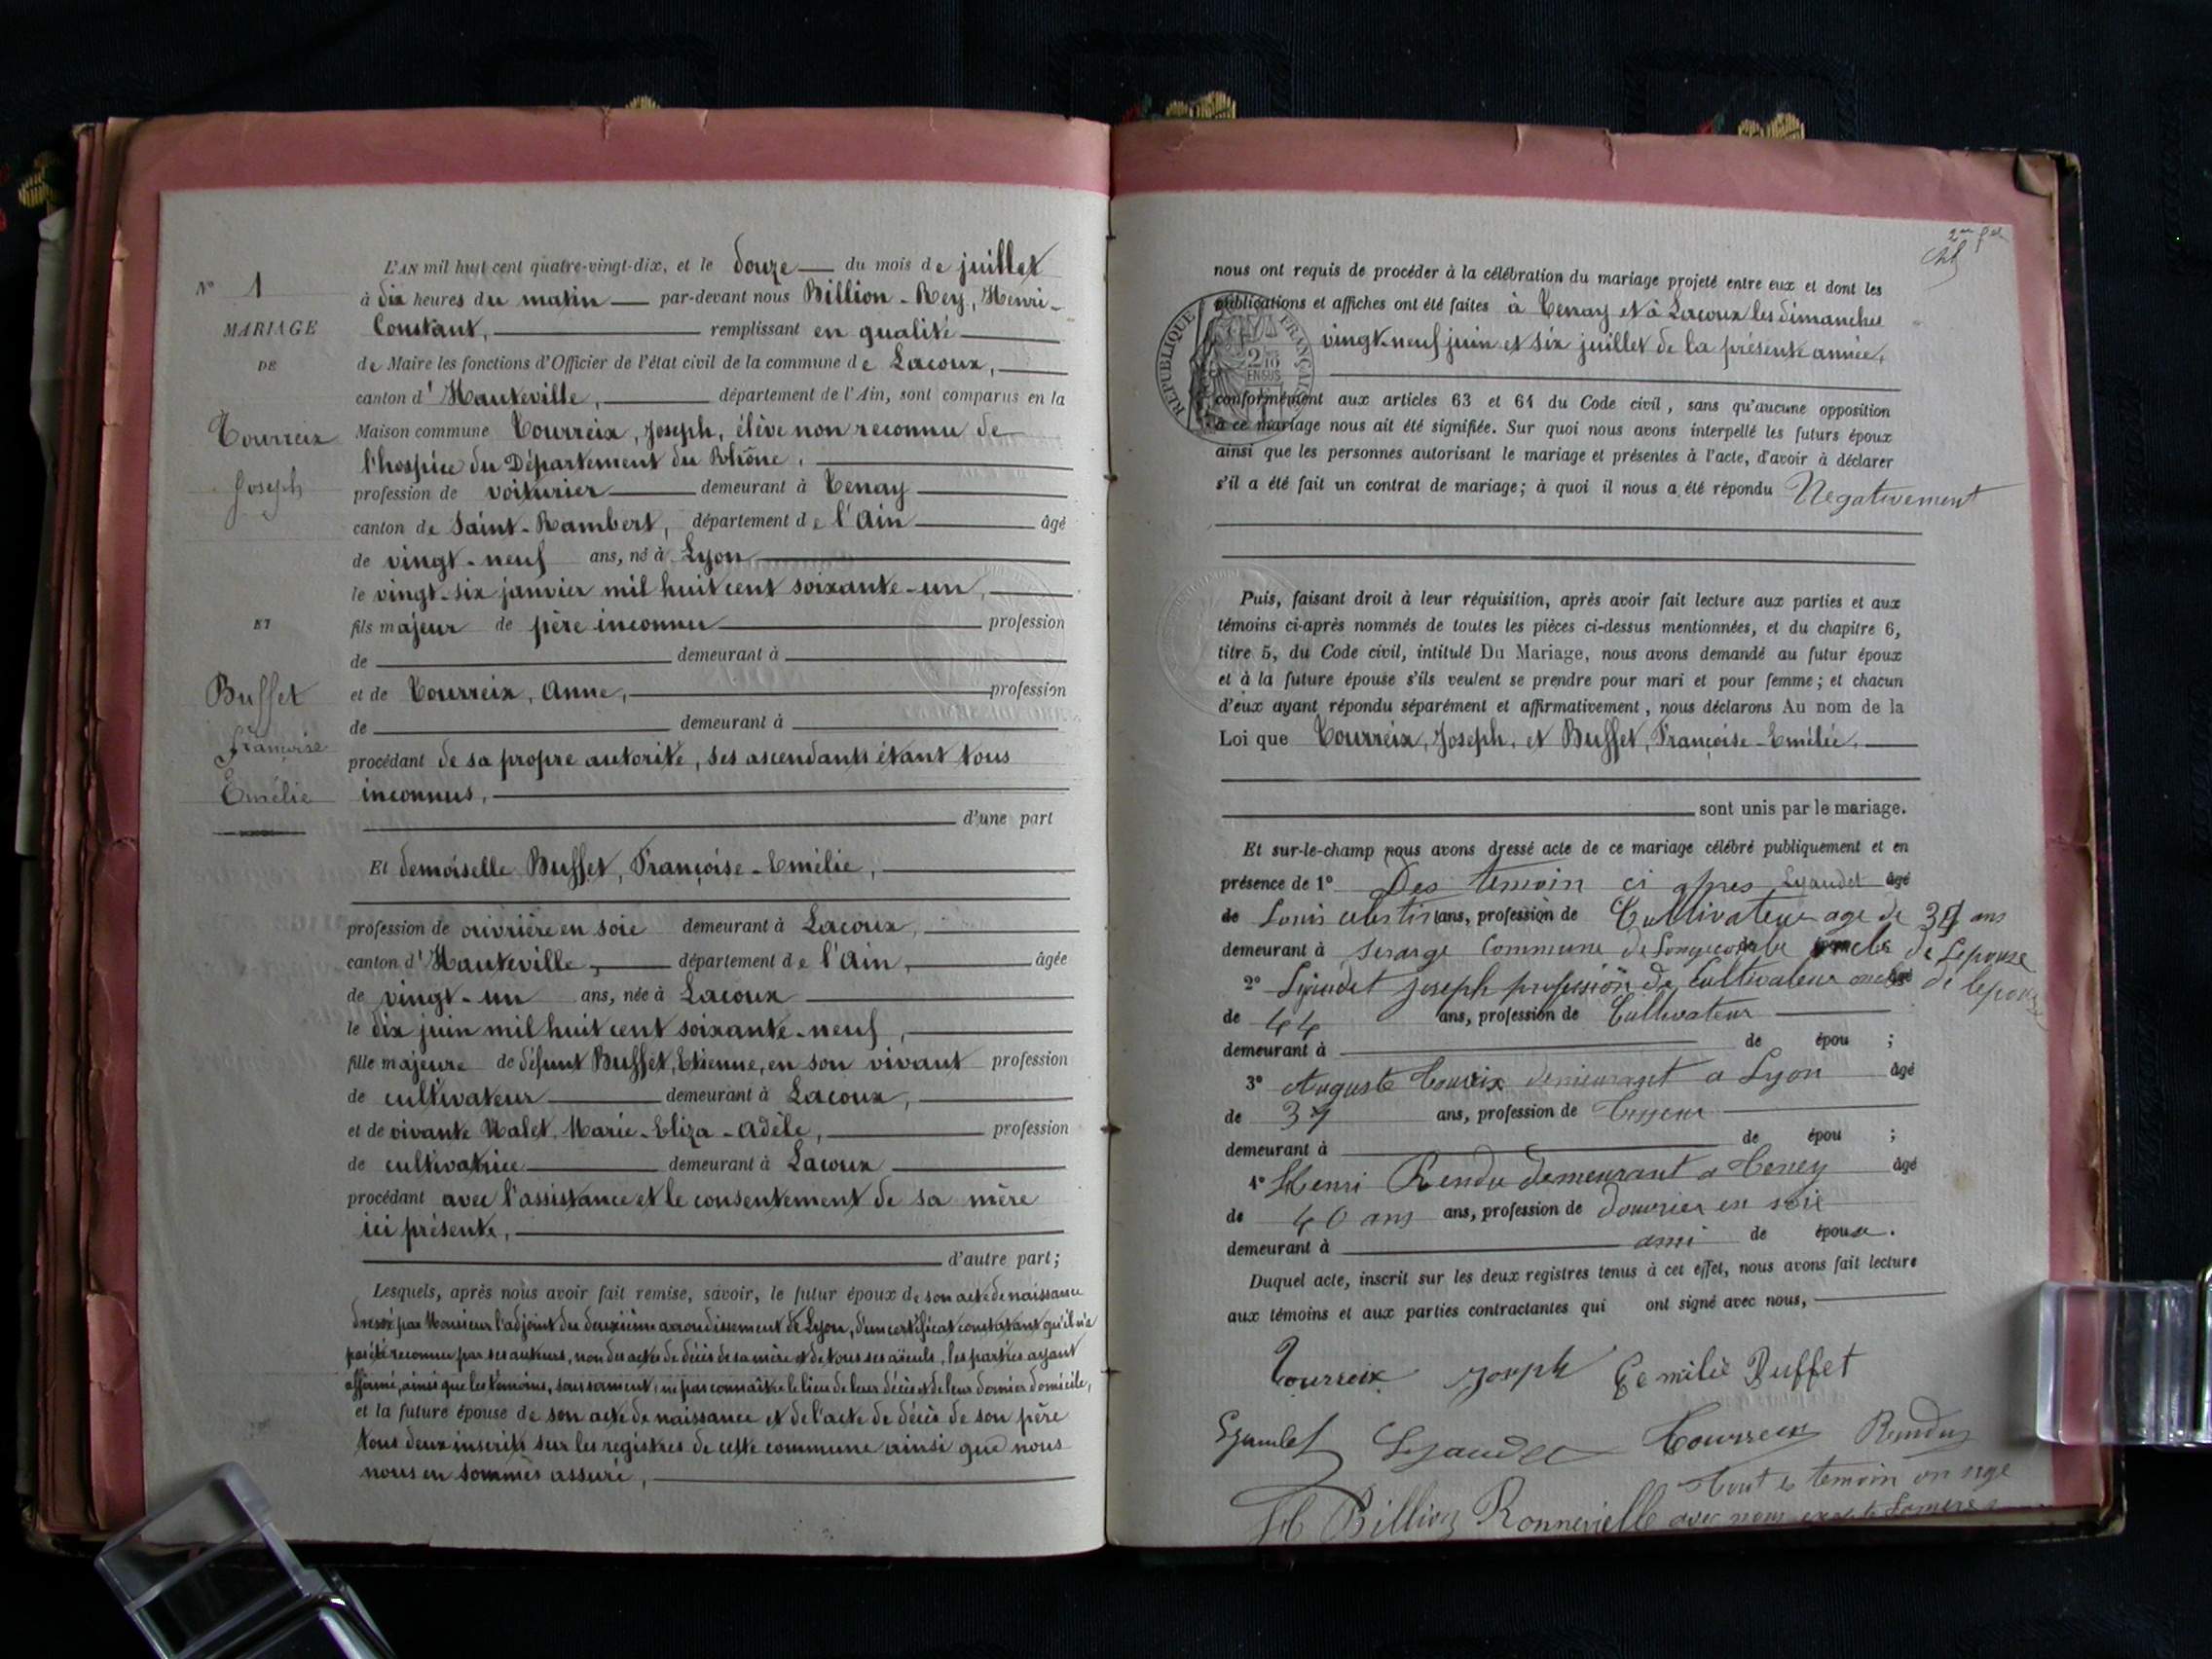 L'AN mil huit cent quatre-vingt-dix, et le douze du mois de juillet
N° 1
à dix heures du matin par-devant nous Billion-Rey, Henri-
MARIAGE
Constant, remplissant en qualité
DE
de Maire les fonctions d'Officier de l'état civil de la commune de Lacoux,
canton d'Hauteville, département de l'Ain, sont comparus en la
Tourreix
Joseph
Maison commune Tourreix, Joseph, élève non reconnu de
l'hospice du Département du Rhône,
profession de voiturier demeurant à Tenay
canton de Saint-Rambert, département de l'Ain âgé
de vingt-neuf ans, né à Lyon
le vingt-six janvier mil huit cent soixante-un,
ET
fils majeur de père inconnu profession
de demeurant à
Buffet
Françoise
Emélie
et de Tourreix, Anne, profession
de demeurant à
procédant de sa propre autorité, ses ascendants étant tous
inconnus,
d'une part
Et demoiselle Buffet, Françoise-Emélie,
profession de ouvrière en soie demeurant à Lacoux,
canton d'Hauteville, département de l'Ain, âgée
de vingt-un ans, née à Lacoux
le dix juin mil huit cent soixante-neuf,
fille majeure de défunt Buffet, Etienne, en son vivant profession
de cultivateur demeurant à Lacoux,
et de vivante Malet, Marie-Eliza-Adèle, profession
de cultivatrice demeurant à Lacoux
procédant avec l'assistance et le consentement de sa mère
ici présente,
d'autre part;
Lesquels, après nous avoir fait remise, savoir, le futur époux de son acte de naissance
dressé par Monsieur l'adjoint du deuxième arrondissement de Lyon, d'un certificat constatant qu'il n'a
pas été reconnu par ses auteurs, non des actes de décès de sa mère et de tous ses aïeuls, les parties ayant
affirmé, ainsi que les témoins, sous serment, ne pas connaître le lieu de leur décès et de leur dernier domicile,
et la future épouse de son acte de naissance et de l'acte de décès de son père
tous deux inscrits sur les registres de cette commune ainsi que nous
nous en sommes assuré,
nous ont requis de procéder à la célébration du mariage projeté entre eux et dont les
publications et affiches ont été faites à Tenay et à Lacoux les dimanches
vingt-neuf juin et six juillet de la présente année,
RÉPUBLIQUE FRANÇAISE
conformément aux articles 63 et 64 du Code civil, sans qu'aucune opposition
à ce mariage nous ait été signifiée. Sur quoi nous avons interpellé les futurs époux
ainsi que les personnes autorisant le mariage et présentes à l'acte, d'avoir à déclarer
s'il a été fait un contrat de mariage; à quoi il nous a été répondu Negativement
Puis, faisant droit à leur réquisition, après avoir fait lecture aux parties et aux
témoins ci-après nommés de toutes les pièces ci-dessus mentionnées, et du chapitre 6,
titre 5, du Code civil, intitulé Du Mariage, nous avons demandé au futur époux
et à la future épouse s'ils veulent se prendre pour mari et pour femme; et chacun
d'eux ayant répondu séparément et affirmativement, nous déclarons Au nom de la
Loi que Tourreix, Joseph, et Buffet, Françoise-Emélie,
sont unis par le mariage.
Et sur-le-champ nous avons dressé acte de ce mariage célébré publiquement et en
présence de 1° Des temoin ci apres Lyaudet âgé
de Louis ans, profession de Cultivateur age de ans
demeurant à Commune de de Lepouse
2° Lyaudet joseph profession de Cultivateur oncle âgé de lepouse
de 44 ans, profession de Cultivateur
demeurant à de épou ;
3° Auguste Toureix demeurant a Lyon âgé
de ans, profession de
demeurant à de épou ;
4° Henri Rendu demeurant a Teney âgé
de 40 ans ans, profession de douvrier en soie
demeurant à ami de épouse.
Duquel acte, inscrit sur les deux registres tenus à cet effet, nous avons fait lecture
aux témoins et aux parties contractantes qui ont signé avec nous,
Tourreix Joseph Eemilie Buffet
Lyaudet Lyaudet Tourreix Rendu
Tout le temoin on signe
Billion avec nous